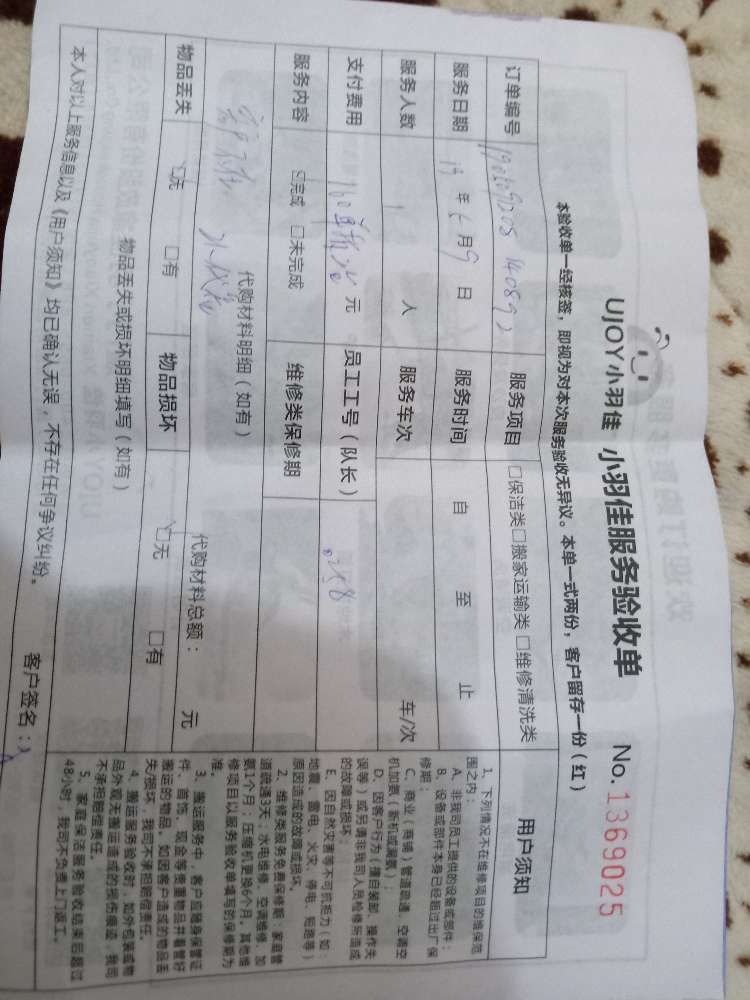 UJOY小羽佳 小羽佳服务验收单 No.1369025
本验收单一经核签，即视为对本次服务验收无异议。本单一式两份，客户留存一份（红）
订单编号 服务项目 □保洁类□搬家运输类□维修清洗类
服务日期 19 年 6 月 9 日 服务时间 自 至 止
服务人数 1 人 服务车次 车/次
支付费用 元 员工工号（队长） 0258
服务内容 ☑完成 □未完成 维修类保修期
代购材料明细（如有）
代购材料总额： 元
物品丢失 ☑无 □有 物品损坏 ☑无 □有
物品丢失或损坏明细填写（如有）
本人对以上服务信息以及《用户须知》均已确认无误，不存在任何争议纠纷。 客户签名：
用户须知
1、下列情况不在维修项目的维保范
围之内：
A、非我司员工提供的设备或部件；
B、设备或部件本身已经超过出厂保
修期；
C、商业（商铺）管道疏通、空调空
机加氨（新机或漏氨）；
D、因客户行为（擅自装卸、操作失
误等）或另请非我司人员检修所造成
的故障或损坏；
E、因自然灾害等不可抗拒力（如：
地震、雷电、火灾、停电、短路等）
原因造成的故障或损坏。
2、维修类服务免费保修期：家庭管
道疏通3天；水电维修、空调维修、加
氨1个月；压缩机更换6个月，其他维
修项目以服务验收单填写的保修期为
准。
3、搬运服务中，客户应随身保管证
件、首饰、现金等贵重物品并看管好
搬运的物品，如因客户造成的物品丢
失/损坏，我司不承担赔偿责任。
4、搬运服务验收时，如外包装或物
品外观无搬运造成的损伤痕迹，我司
不承担赔偿责任。
5、家庭保洁服务验收结束后超过
48小时，我司不负责上门返工。